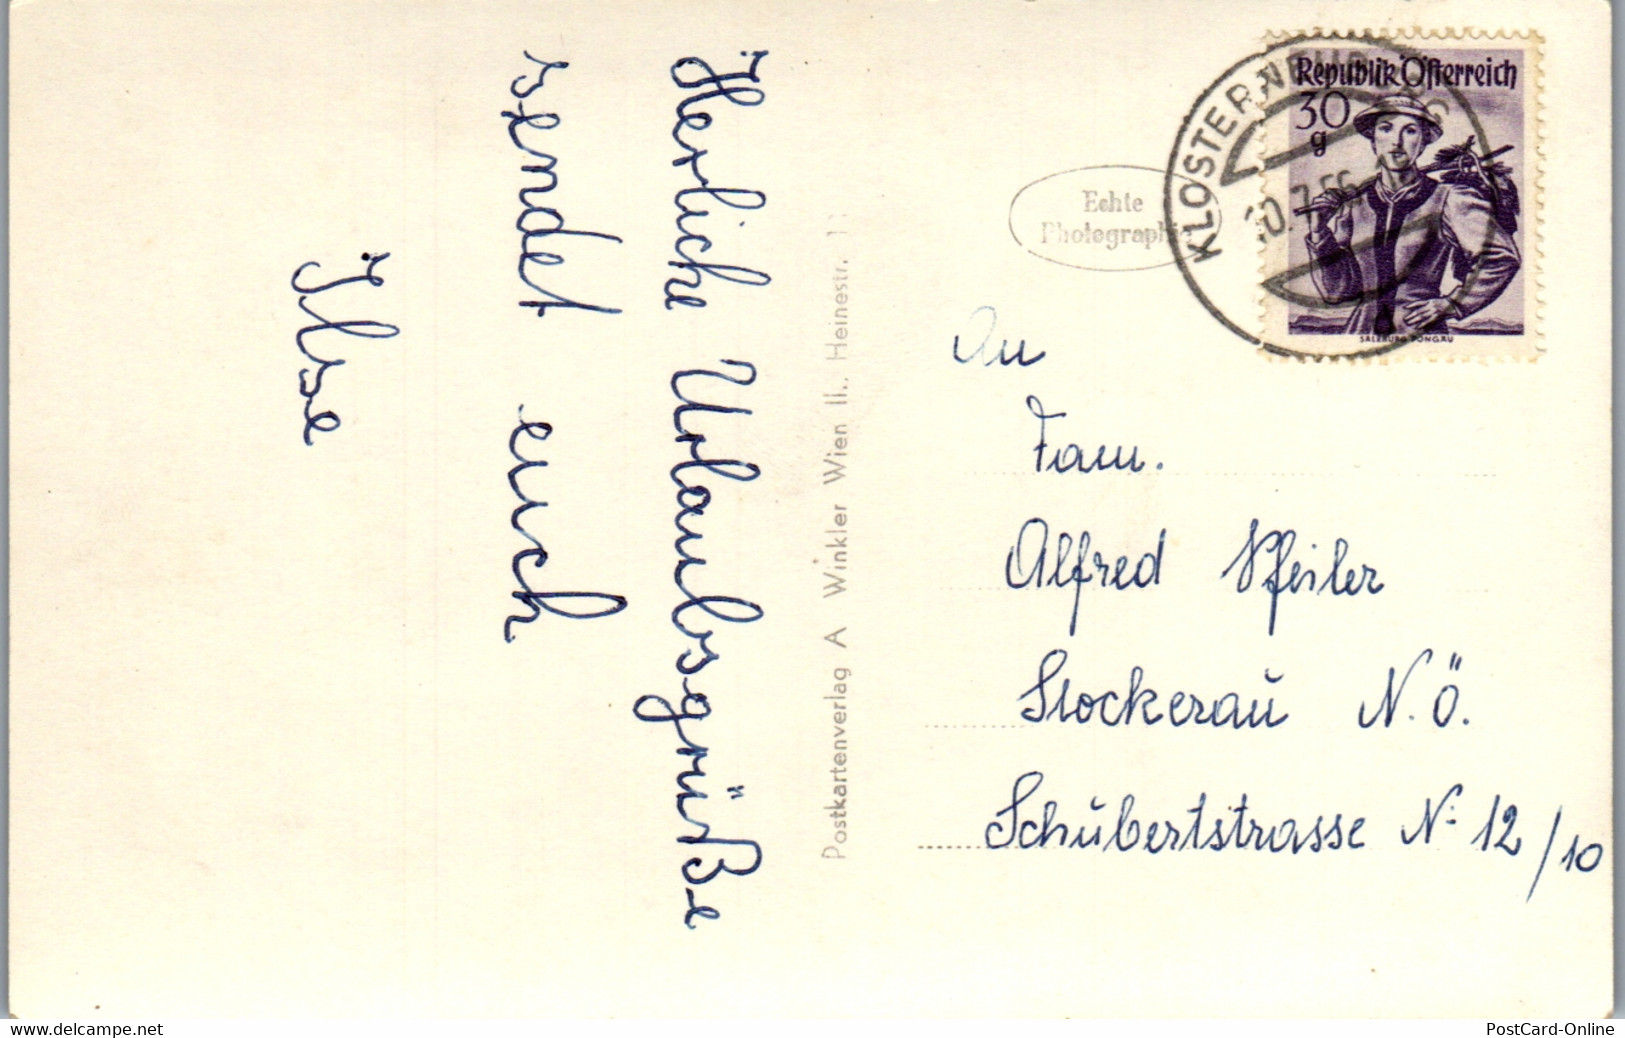 Herzliche Urlaubsgrüße
sendet euch
Ilse
Postkartenverlag A Winkler Wien II., Heinestr.
Echte
Photographie
KLOSTERNEUBURG
10.7.56
Republik Österreich
30
g
SALZBURG PONGAU
An
Fam.
Alfred Pfeiler
Stockerau N.Ö.
Schubertstrasse N: 12/10
www.delcampe.net
PostCard-Online